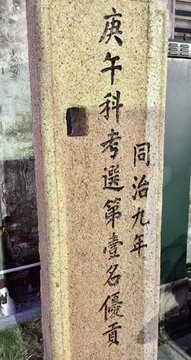 同治九年
庚午科考選第壹名優貢